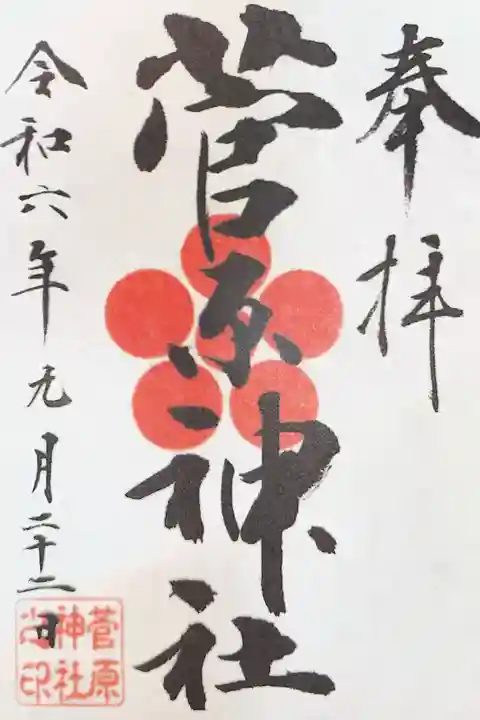 奉拝
菅原神社
令和六年元月二十二日
菅原
神社
之印